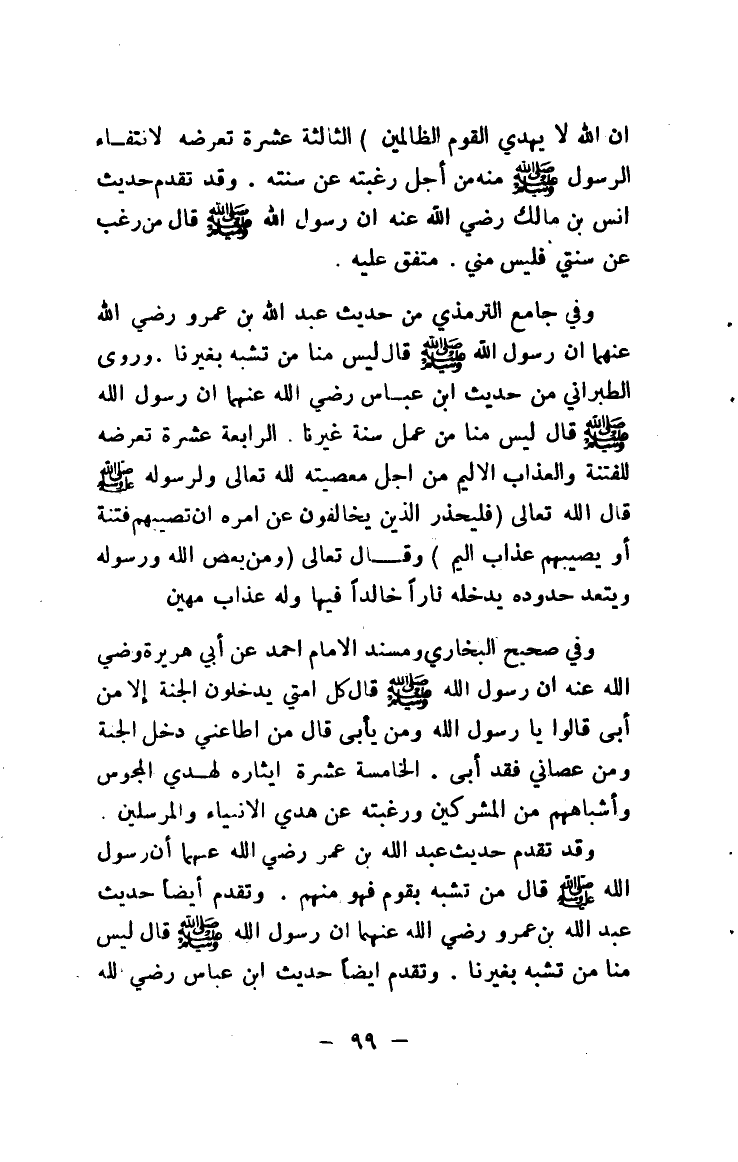 ان الله لا يهدي القوم الظالمين ) الثالثة عشرة تعرضه لانتفـاء
الرسول ﷺ منه من أجل رغبته عن سنته . وقد تقدم حديث
انس بن مالك رضي الله عنه ان رسول الله ﷺ قال من رغب
عن سنتي فليس مني . متفق عليه .
وفي جامع الترمذي من حديث عبد الله بن عمرو رضي الله
عنهما ان رسول الله ﷺ قال ليس منا من تشبه بغيرنا . وروى
الطبراني من حديث ابن عبـاس رضي الله عنهما ان رسول الله
ﷺ قال ليس منا من عمل سنة غيرنا . الرابعة عشرة تعرضه
للفتنة والعذاب الاليم من اجل معصيته لله تعالى ولرسوله ﷺ
قال الله تعالى (فليحذر الذين يخالفون عن امره ان تصيبهم فتنة
أو يصيبهم عذاب اليم ) وقـــال تعالى (ومن يعص الله ورسوله
ويتعد حدوده يدخله ناراً خالداً فيها وله عذاب مهين
وفي صحيح البخاري ومسند الامام احمد عن أبي هريرة وضي
الله عنه ان رسول الله ﷺ قال كل امتي يدخلون الجنة إلا من
أبى قالوا يا رسول الله ومن يأبى قال من اطاعني دخل الجنة
ومن عصاني فقد أبى . الخامسة عشرة ايثاره لهـدي المجوس
وأشباههم من المشركين ورغبته عن هدي الانبياء والمرسلين .
وقد تقدم حديث عبد الله بن عمر رضي الله عنهما أن رسول
الله ﷺ قال من تشبه بقوم فهو منهم . وتقدم أيضاً حديث
عبد الله بن عمرو رضي الله عنهما ان رسول الله ﷺ قال ليس
منا من تشبه بغيرنا . وتقدم ايضاً حديث ابن عباس رضي لله
– ٩٩ –